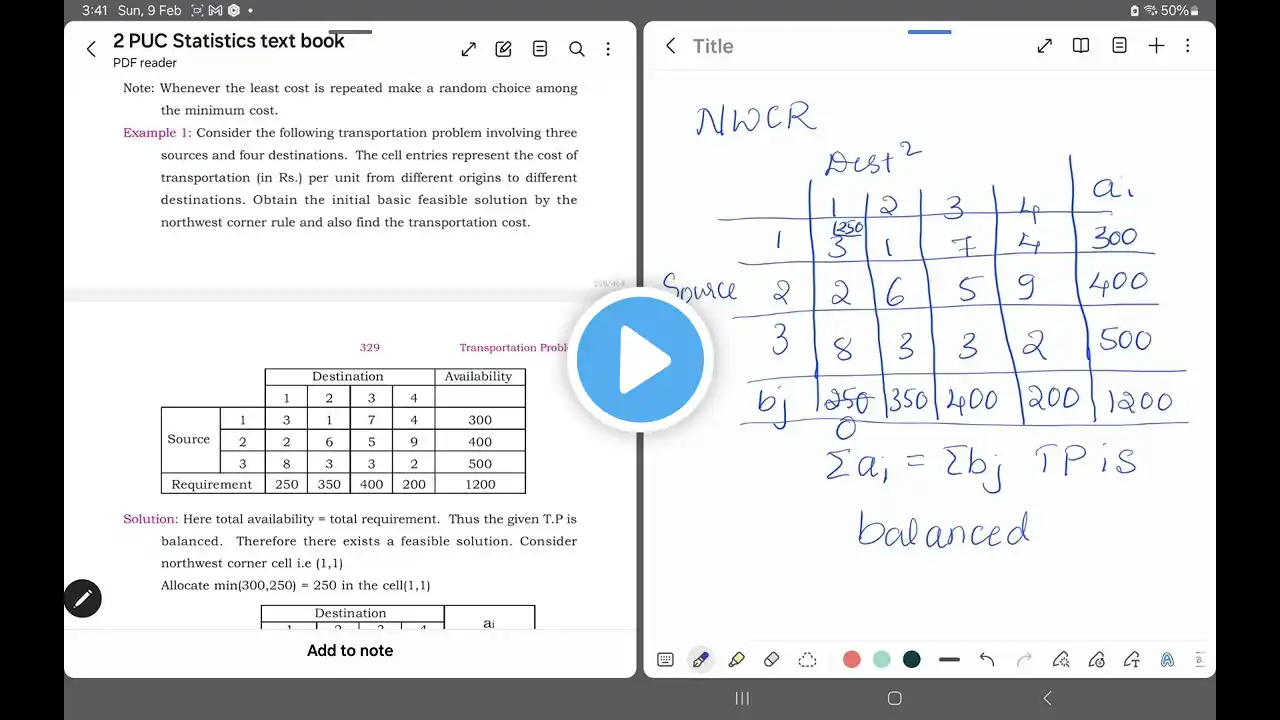 3:41 Sun, 9 Feb
50%
2 PUC Statistics text book
PDF reader
Note: Whenever the least cost is repeated make a random choice among
the minimum cost.
Example 1: Consider the following transportation problem involving three
sources and four destinations. The cell entries represent the cost of
transportation (in Rs.) per unit from different origins to different
destinations. Obtain the initial basic feasible solution by the
northwest corner rule and also find the transportation cost.
329 Transportation Proble
Destination Availability
1 2 3 4
Source 1 3 1 7 4 300
2 2 6 5 9 400
3 8 3 3 2 500
Requirement 250 350 400 200 1200
Solution: Here total availability = total requirement. Thus the given T.P is
balanced. Therefore there exists a feasible solution. Consider
northwest corner cell i.e (1,1)
Allocate min(300,250) = 250 in the cell(1,1)
Destination ai
1 2 3 4
Add to note
Title
NWCR
Dest 2
1 2 3 4 ai
1250
1 3 1 7 4 300
Source 2 2 6 5 9 400
3 8 3 3 2 500
bj 250 350 400 200 1200
0
Σai = Σbj TP is
balanced